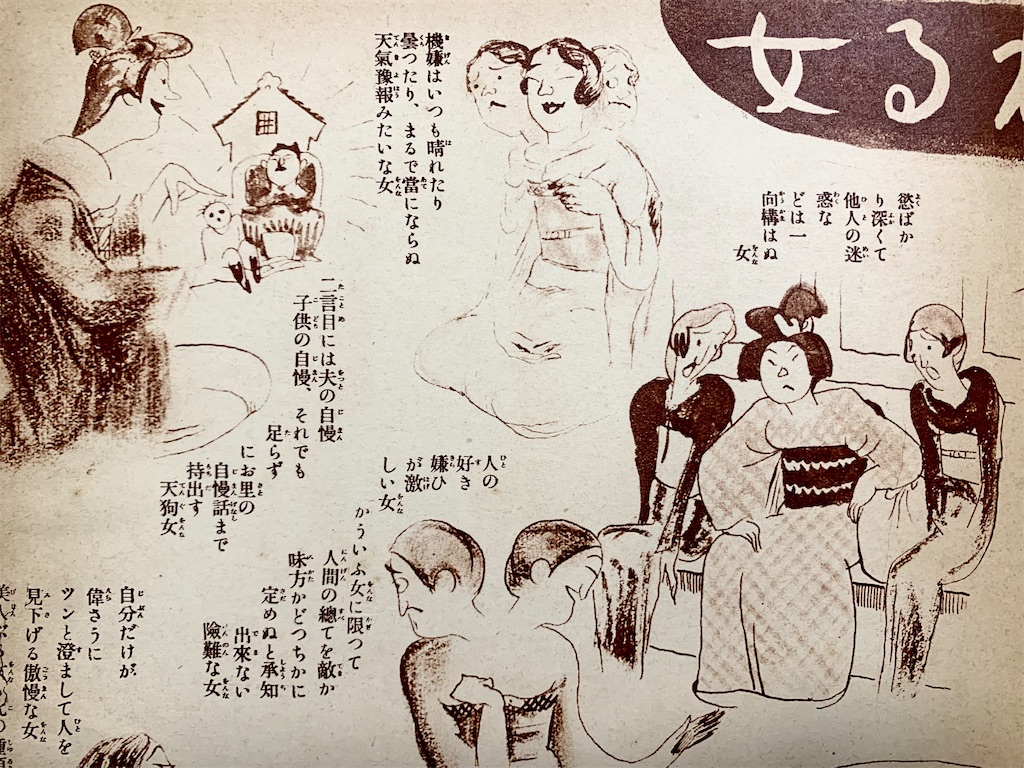 る女
慾ばか
り深くて
他人の迷
惑な
どは一
向構はぬ
女
機嫌はいつも晴れたり
曇つたり、まるで當にならぬ
天氣豫報みたいな女
二言目には夫の自慢
子供の自慢、それでも
足らず
にお里の
自慢話まで
持出す
天狗女
人の
好き
嫌ひ
が激
しい女
かういふ女に限つて
人間の總てを敵か
味方かどつちかに
定めぬと承知
出來ない
險難な女
自分だけが、
偉さうに
ツンと澄まして人を
見下げる傲慢な女